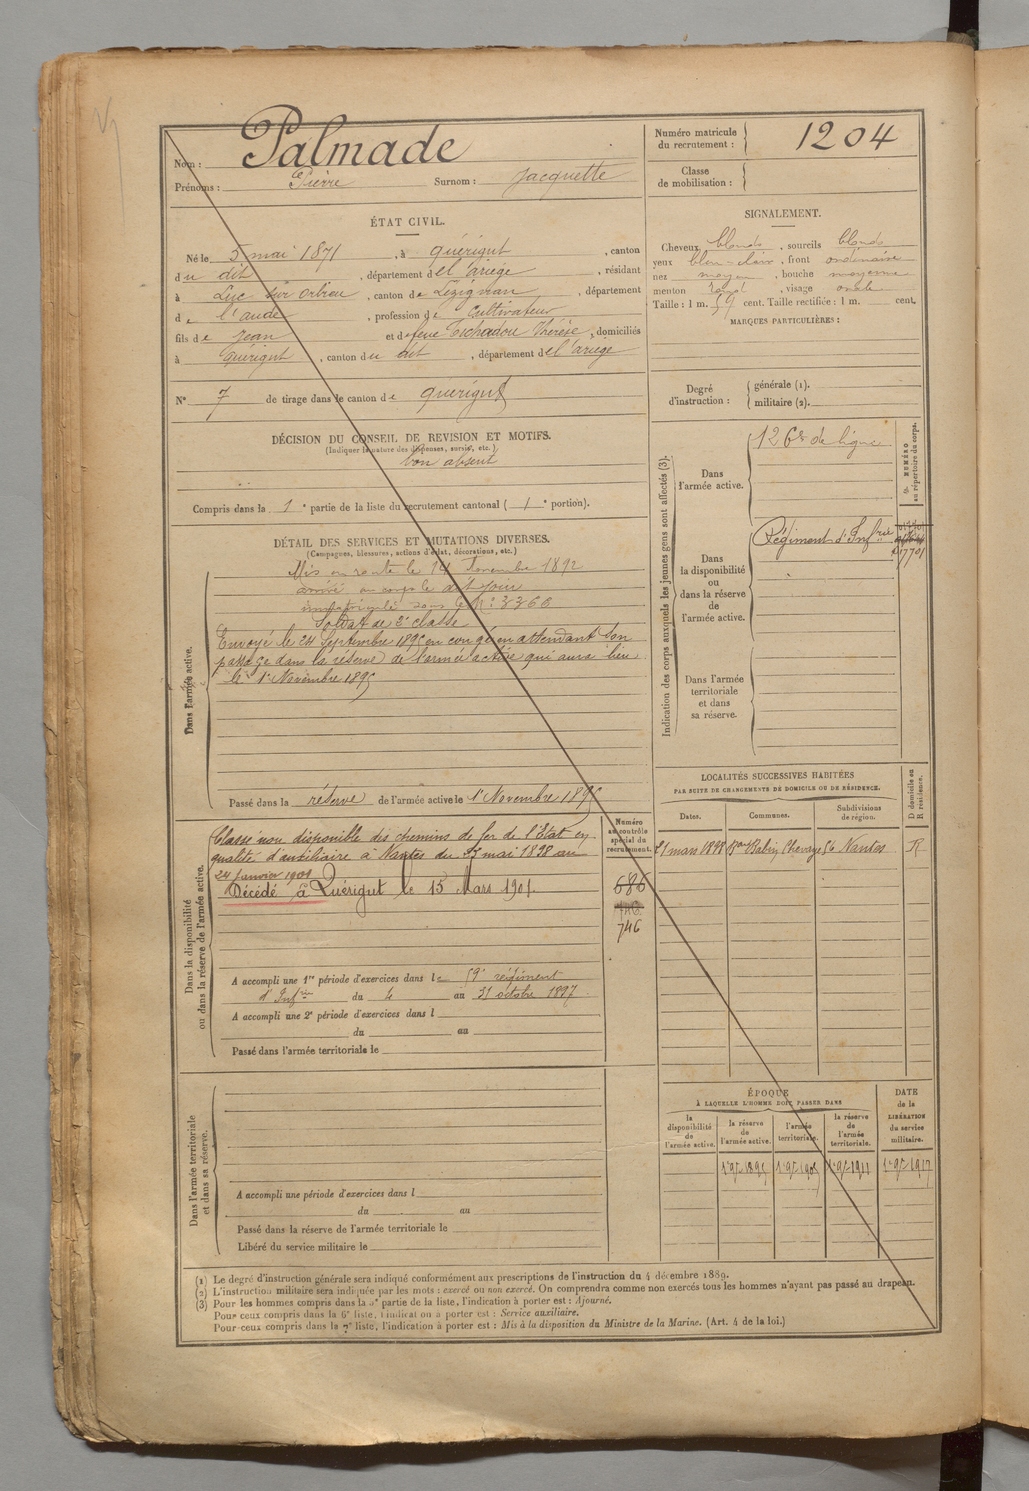 Nom : Palmade
Prénoms : Pierre Surnom : Jacquette
Numéro matricule du recrutement : 1204
Classe de mobilisation :
ÉTAT CIVIL.
Né le 5 mai 1871, à Quérigut, canton
du dit, département de l'ariège, résidant
à Luc sur Orbieu, canton de Lézignan, département
de l'aude, profession de Cultivateur
fils de Jean et de feue Thérèse, domiciliés
à Quérigut, canton du dit, département de l'ariège
N° 7 de tirage dans le canton de Quérigut
DÉCISION DU CONSEIL DE REVISION ET MOTIFS.
(Indiquer la nature des dispenses, sursis, etc.)
bon absent
Compris dans la 1e partie de la liste du recrutement cantonal (1e portion).
SIGNALEMENT.
Cheveux blonds, sourcils blonds
yeux bleu-clair, front ordinaire
nez moyen, bouche moyenne
menton rond, visage ovale
Taille : 1 m. 59 cent. Taille rectifiée : 1 m. cent.
MARQUES PARTICULIÈRES :
Degré d'instruction : générale (1). militaire (2).
DÉTAIL DES SERVICES ET MUTATIONS DIVERSES.
(Campagnes, blessures, actions d'éclat, décorations, etc.)
Dans l'armée active.
Mis en route le 14 Novembre 1892
arrivé au corps le dit jour
immatriculé sous le N°
Soldat de 2e classe
Envoyé le 24 Septembre 1895 en congé en attendant son
passage dans la réserve de l'armée active qui aura lieu
le 1er Novembre 1895
Passé dans la réserve de l'armée active le 1er Novembre 1895
Indication des corps auxquels les jeunes gens sont affectés (3).
NUMÉRO au répertoire du corps.
Dans l'armée active.
126e de ligne
Dans la disponibilité ou dans la réserve de l'armée active.
Régiment d'Infrie
17701
Dans l'armée territoriale et dans sa réserve.
Dans la disponibilité ou dans la réserve de l'armée active.
Numéro au contrôle spécial du recrutement.
Classé non disponible des chemins de fer de l'Etat en
qualité d'auxiliaire à Nantes du 23 mai 1898 au
24 Janvier 1901
Décédé à Quérigut le 15 Mars 1901.
686
746
746
A accompli une 1re période d'exercices dans le 59e régiment
d'Infrie du 4 au 31 octobre 1897
A accompli une 2e période d'exercices dans l
du au
Passé dans l'armée territoriale le
LOCALITÉS SUCCESSIVES HABITÉES
PAR SUITE DE CHANGEMENTS DE DOMICILE OU DE RÉSIDENCE.
Dates. Communes. Subdivisions de région. D domicile ou R résidence.
21 mars 1898 Nantes R
Dans l'armée territoriale et dans sa réserve.
A accompli une période d'exercices dans l
du au
Passé dans la réserve de l'armée territoriale le
Libéré du service militaire le
ÉPOQUE
À LAQUELLE L'HOMME DOIT PASSER DANS
la disponibilité de l'armée active.
la réserve de l'armée active.
l'armée territoriale.
la réserve de l'armée territoriale.
DATE de la LIBÉRATION du service militaire.
1er 9bre 1895 1er 9bre 1905 1er 9bre 1911 1er 9bre 1917
(1) Le degré d'instruction générale sera indiqué conformément aux prescriptions de l'instruction du 4 décembre 1889.
(2) L'instruction militaire sera indiquée par les mots : exercé ou non exercé. On comprendra comme non exercés tous les hommes n'ayant pas passé au drapeau.
(3) Pour les hommes compris dans la 2e partie de la liste, l'indication à porter est : Ajourné.
Pour ceux compris dans la 6e liste, l'indication à porter est : Service auxiliaire.
Pour ceux compris dans la 7e liste, l'indication à porter est : Mis à la disposition du Ministre de la Marine. (Art. 4 de la loi.)